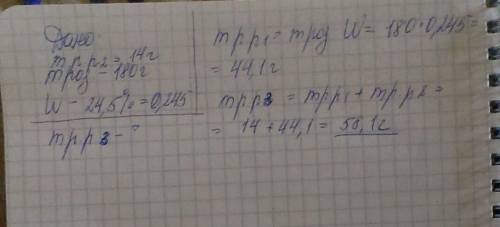 Дано:
m р.р2 = 14г
m роз – 180г
W – 24,5% = 0,245
m р р 3 – ?
m р.р1 = m роз W = 180 · 0,245 =
= 44,1 г
m р р3 = m р р1 + m р.р2 =
= 14 + 44,1 = 58,1г